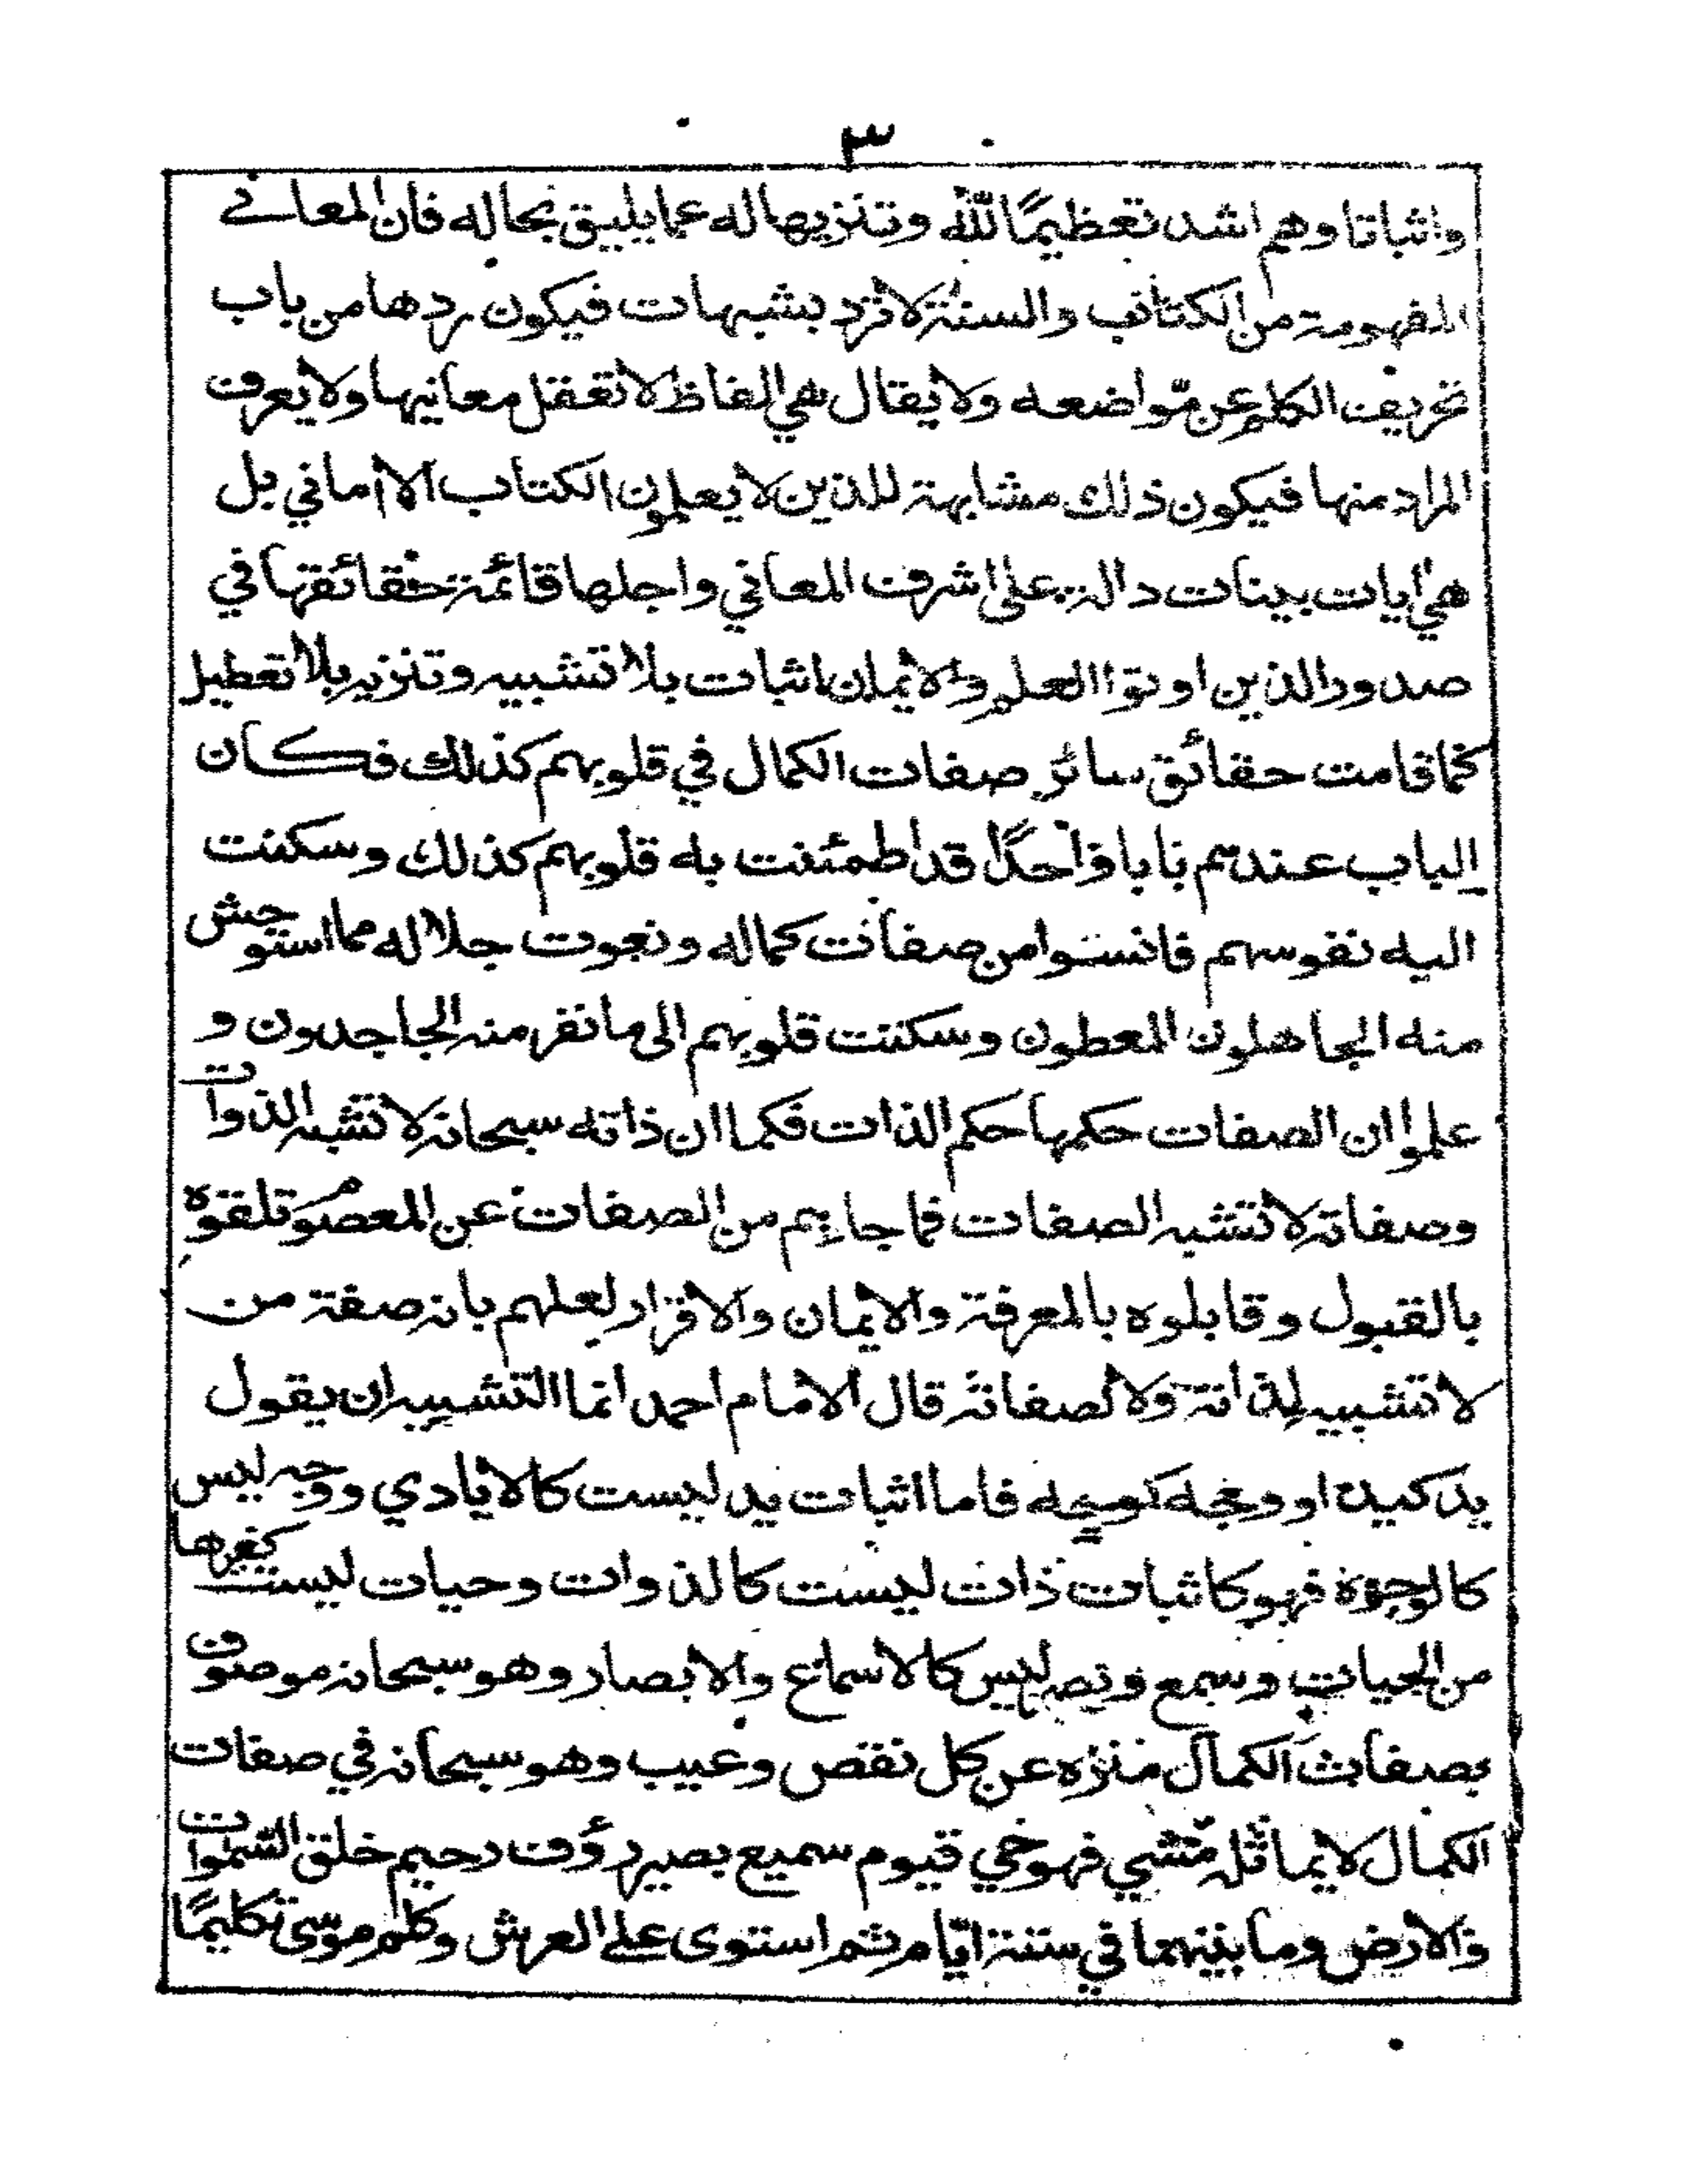 ٣
واثباتا وهم اشد تعظيمًا للّٰه وتنزيها له عما يليق بحاله فان المعاني
المفهومة من الكتاب والسنة لا ترد بشبهات فيكون ردها من باب
تحريف الكلم عن مّواضعه ولا يقال هي الفاظ لا تعقل معانيها ولا يعرف
المراد منها فيكون ذلك مشابهة للذين لا يعلمون الكتاب الا اماني بل
هي ايات بينات دالة على اشرف المعاني واجلها قائمة حقائقها في
صدور الذين اوتوا العلم والايمان اثبات بلا تشبيه وتنزيه بلا تعطيل
كما قامت حقائق سائر صفات الكمال في قلوبهم كذلك فكان
الباب عندهم بابا واحدًا قد اطمئنت به قلوبهم كذلك وسكنت
اليه نفوسهم فانسوا من صفات كماله ونعوت جلاله مما استوحش
منه الجاهلون المعطون وسكنت قلوبهم الى ما نفر منه الجاحدون و
علموا ان الصفات حكمها حكم الذات فكما ان ذاته سبحانه لا تشبه الذوات
وصفاته لا تشبه الصفات فما جاءهم من الصفات عن المعصوم تلقوه
بالقبول وقابلوه بالمعرفة والايمان والاقرار لعلهم بانه صفة من
لا تشبيه لذاته ولا لصفاته قال الامام احمد انما التشبيه ان يقول
يد كيد او وجه كوجه فاما اثبات يد ليست كالايادي ووجه ليس
كالوجوه فهو كاثبات ذات ليست كالذوات وحيات ليست كغيرها
من الحيات وسمع وبصر ليس كالاسماع والابصار وهو سبحانه موصوف
بصفات الكمال منزه عن كل نقص وعيب وهو سبحانه في صفات
الكمال لا يماثله شي فهو حي قيوم سميع بصير رؤف رحيم خلق السموات
والارض وما بينهما في ستة ايّام ثم استوى على العرش وكلم موسى تكليمًا